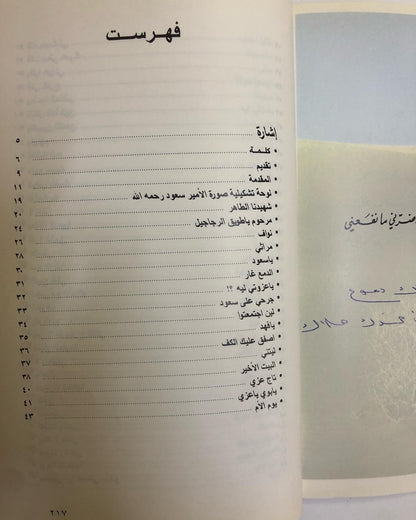 فهرست
إشارة ٥
• كلمة ٦
• تقديم ٩
• المقدمة ١١
• لوحة تشكيلية صورة الأمير سعود رحمه الله ١٩
• شهيدنا الطاهر ٢٠
• مرحوم ياطويق الرجاجيل ٢٤
• نواف ٢٦
• مراثي ٢٨
• ياسعود ٣٠
• الدمع غار ٣١
• ياعزوتي ليه ؟! ٣٢
• جرحي على سعود ٣٣
• لين اجتمعتوا ٣٤
• يافهد ٣٥
• اصفق عليك الكف ٣٦
• ليتني ٣٧
• البيت الأخير ٣٨
• تاج عزي ٤٠
• يابوي ياعزي ٤١
• يوم الأم ٤٣
٢١٧
ما نفعني
دموع